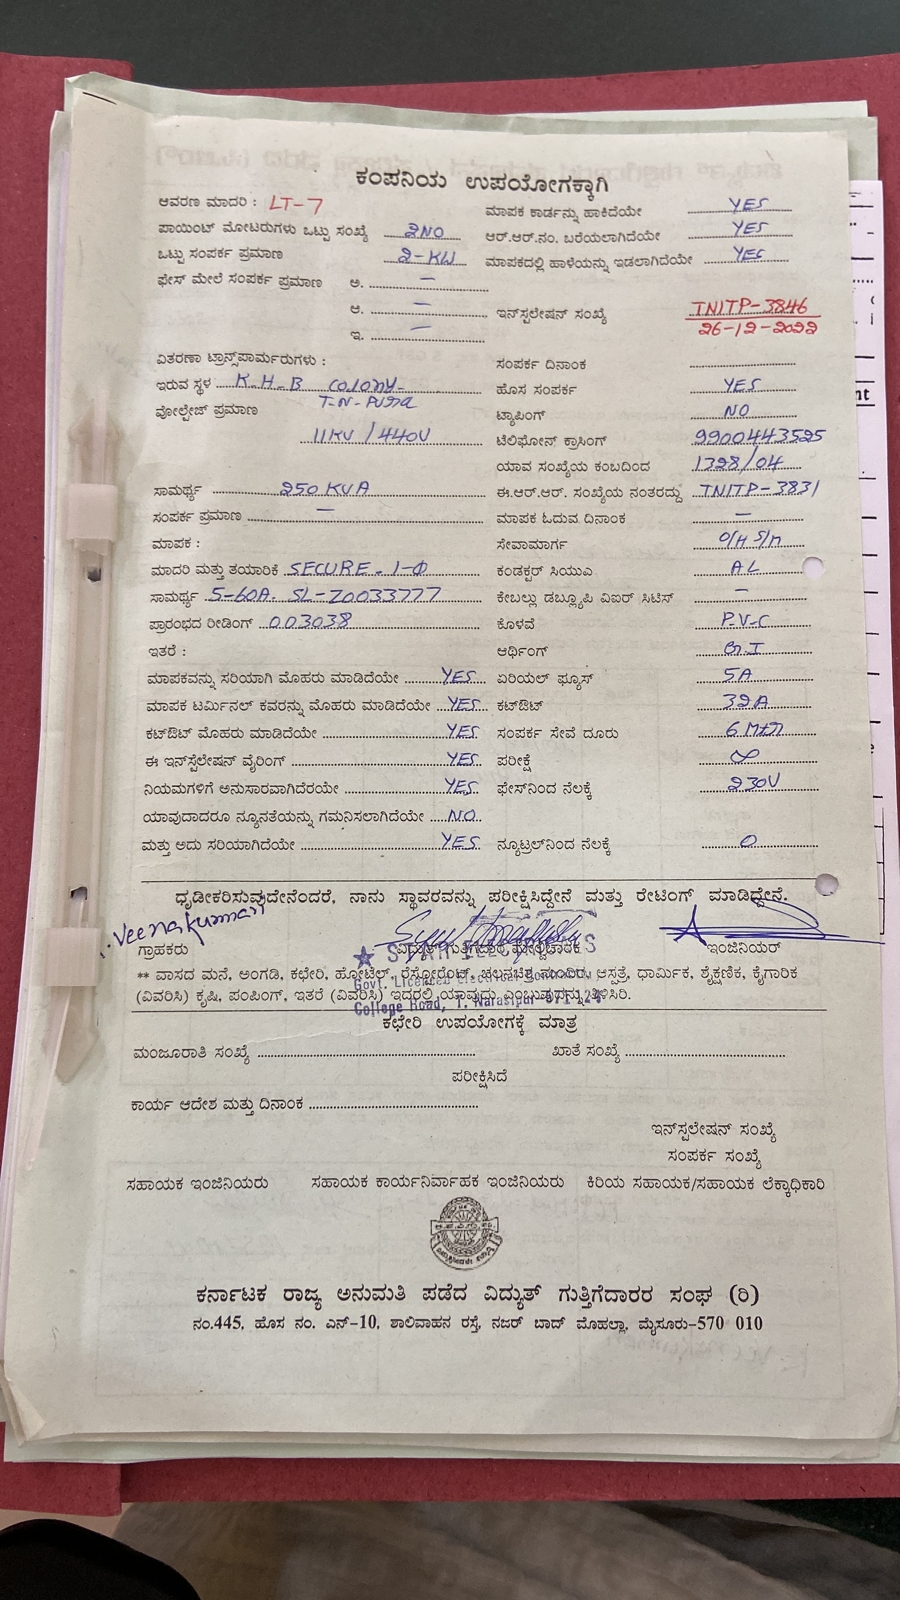 ಕಂಪನಿಯ ಉಪಯೋಗಕ್ಕಾಗಿ
ಆವರಣ ಮಾದರಿ : LT-7 ಮಾಪಕ ಕಾರ್ಡನ್ನು ಹಾಕಿದೆಯೇ YES
ಪಾಯಿಂಟ್ ಮೋಟರುಗಳು ಒಟ್ಟು ಸಂಖ್ಯೆ 2NO ಆರ್.ಆರ್.ನಂ. ಬರೆಯಲಾಗಿದೆಯೇ YES
ಒಟ್ಟು ಸಂಪರ್ಕ ಪ್ರಮಾಣ 2-KW ಮಾಪಕದಲ್ಲಿ ಹಾಳೆಯನ್ನು ಇಡಲಾಗಿದೆಯೇ YES
ಫೇಸ್ ಮೇಲೆ ಸಂಪರ್ಕ ಪ್ರಮಾಣ ಅ. —
ಆ. — ಇನ್‌ಸ್ಟಲೇಷನ್ ಸಂಖ್ಯೆ TNITP-3846
ಇ. — 26-12-2022
ವಿತರಣಾ ಟ್ರಾನ್ಸ್‌ಪಾರ್ಮರುಗಳು : ಸಂಪರ್ಕ ದಿನಾಂಕ
ಇರುವ ಸ್ಥಳ K.H-B COLONY- ಹೊಸ ಸಂಪರ್ಕ YES
T-N-Pura
ವೋಲ್ಟೇಜ್ ಪ್ರಮಾಣ ಟ್ಯಾಪಿಂಗ್ NO
11KV/440V ಟೆಲಿಫೋನ್ ಕ್ರಾಸಿಂಗ್ 9900443525
ಯಾವ ಸಂಖ್ಯೆಯ ಕಂಬದಿಂದ 1328/04
ಸಾಮರ್ಥ್ಯ 250 KVA ಈ.ಆರ್.ಆರ್. ಸಂಖ್ಯೆಯ ನಂತರದ್ದು TNITP-3831
ಸಂಪರ್ಕ ಪ್ರಮಾಣ — ಮಾಪಕ ಓದುವ ದಿನಾಂಕ —
ಮಾಪಕ : ಸೇವಾಮಾರ್ಗ O/H S/M
ಮಾದರಿ ಮತ್ತು ತಯಾರಿಕೆ SECURE-1-Φ ಕಂಡಕ್ಟರ್ ಸಿಯುಎ AL
ಸಾಮರ್ಥ್ಯ 5-60A. SL-Z0033777 ಕೇಬಲ್ಲು ಡಬ್ಲ್ಯೂಪಿ ವಿಐರ್ ಸಿಟಿಸ್ —
ಪ್ರಾರಂಭದ ರೀಡಿಂಗ್ 003038 ಕೊಳವೆ P-V-C
ಇತರೆ : ಆರ್ಥಿಂಗ್ G.I
ಮಾಪಕವನ್ನು ಸರಿಯಾಗಿ ಮೊಹರು ಮಾಡಿದೆಯೇ YES ಏರಿಯಲ್ ಫ್ಯೂಸ್ 5A
ಮಾಪಕ ಟರ್ಮಿನಲ್ ಕವರನ್ನು ಮೊಹರು ಮಾಡಿದೆಯೇ YES ಕಟ್‌ಔಟ್ 32A
ಕಟ್‌ಔಟ್ ಮೊಹರು ಮಾಡಿದೆಯೇ YES ಸಂಪರ್ಕ ಸೇವೆ ದೂರು 6 Mtr
ಈ ಇನ್‌ಸ್ಟೆಲೇಷನ್ ವೈರಿಂಗ್ YES ಪರೀಕ್ಷೆ ∞
ನಿಯಮಗಳಿಗೆ ಅನುಸಾರವಾಗಿದೆರಯೇ YES ಫೇಸ್‌ನಿಂದ ನೆಲಕ್ಕೆ 230V
ಯಾವುದಾದರೂ ನ್ಯೂನತೆಯನ್ನು ಗಮನಿಸಲಾಗಿದೆಯೇ NO
ಮತ್ತು ಅದು ಸರಿಯಾಗಿದೆಯೇ YES ನ್ಯೂಟ್ರಲ್‌ನಿಂದ ನೆಲಕ್ಕೆ 0
ಧೃಡೀಕರಿಸುವುದೇನೆಂದರೆ, ನಾನು ಸ್ಥಾವರವನ್ನು ಪರೀಕ್ಷಿಸಿದ್ದೇನೆ ಮತ್ತು ರೇಟಿಂಗ್ ಮಾಡಿದ್ದೇನೆ.
Veenakumari
ಗ್ರಾಹಕರು ವಿದ್ಯುತ್ ಗುತ್ತಿಗೆದಾರ ಇಂಜಿನಿಯರ್
★ STAR ELECTRICALS
** ವಾಸದ ಮನೆ, ಅಂಗಡಿ, ಕಛೇರಿ, ಹೋಟೆಲ್, ರೆಸ್ಟೋರೆಂಟ್, ಚಲನಚಿತ್ರ ಮಂದಿರ, ಆಸ್ಪತ್ರೆ, ಧಾರ್ಮಿಕ, ಶೈಕ್ಷಣಿಕ, ಕೈಗಾರಿಕ
Govt. Licenced Electrical
(ವಿವರಿಸಿ) ಕೃಷಿ, ಪಂಪಿಂಗ್, ಇತರೆ (ವಿವರಿಸಿ) ಇದರಲ್ಲಿ ಯಾವುದು ಎಂಬುವುದನ್ನು ತಿಳಿಸಿರಿ.
College Road, T. Narasipur-571 124
ಕಛೇರಿ ಉಪಯೋಗಕ್ಕೆ ಮಾತ್ರ
ಮಂಜೂರಾತಿ ಸಂಖ್ಯೆ ಖಾತೆ ಸಂಖ್ಯೆ
ಪರೀಕ್ಷಿಸಿದೆ
ಕಾರ್ಯ ಆದೇಶ ಮತ್ತು ದಿನಾಂಕ
ಇನ್‌ಸ್ಟಲೇಷನ್ ಸಂಖ್ಯೆ
ಸಂಪರ್ಕ ಸಂಖ್ಯೆ
ಸಹಾಯಕ ಇಂಜಿನಿಯರು ಸಹಾಯಕ ಕಾರ್ಯನಿರ್ವಾಹಕ ಇಂಜಿನಿಯರು ಕಿರಿಯ ಸಹಾಯಕ/ಸಹಾಯಕ ಲೆಕ್ಕಾಧಿಕಾರಿ
ಕರ್ನಾಟಕ ರಾಜ್ಯ ಅನುಮತಿ ಪಡೆದ ವಿದ್ಯುತ್ ಗುತ್ತಿಗೆದಾರರ ಸಂಘ (ರಿ)
ನಂ.445, ಹೊಸ ನಂ. ಎನ್-10, ಶಾಲಿವಾಹನ ರಸ್ತೆ, ನಜರ್ ಬಾದ್ ಮೊಹಲ್ಲಾ, ಮೈಸೂರು-570 010